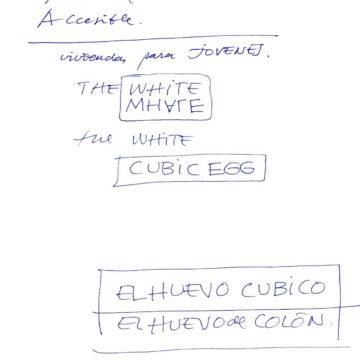 Accesible.
viviendas para JOVENES.
THE WHITE
MHATE
the WHITE
CUBIC EGG
EL HUEVO CUBICO
EL HUEVO de COLÓN.